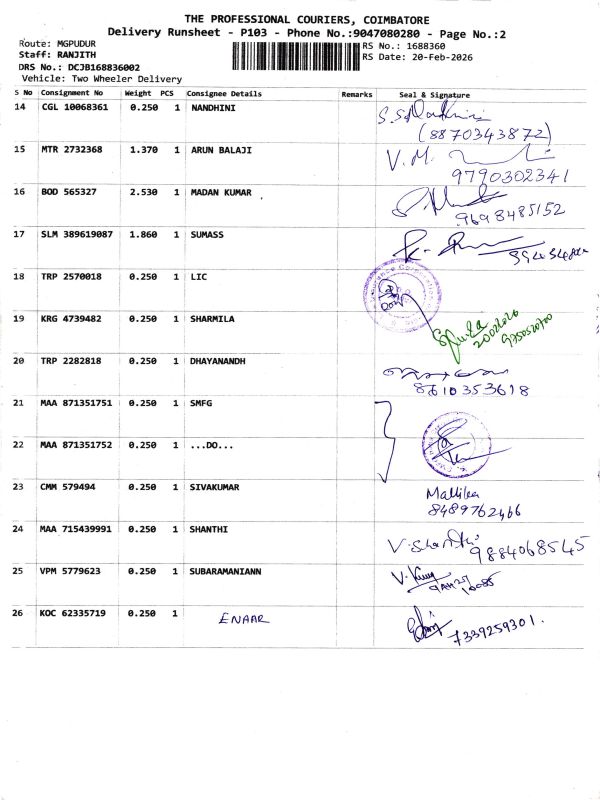 THE PROFESSIONAL COURIERS, COIMBATORE
Delivery Runsheet - P103 - Phone No.:9047080280 - Page No.:2
Route: MGPUDUR
RS No.: 1688360
Staff: RANJITH
RS Date: 20-Feb-2026
DRS No.: DCJB168836002
Vehicle: Two Wheeler Delivery
S No Consignment No Weight PCS Consignee Details Remarks Seal & Signature
14 CGL 10068361 0.250 1 NANDHINI
(8870343872)
15 MTR 2732368 1.370 1 ARUN BALAJI V.M.
9790302341
16 BOD 565327 2.530 1 MADAN KUMAR
9698485152
17 SLM 389619087 1.860 1 SUMASS
18 TRP 2570018 0.250 1 LIC
19 KRG 4739482 0.250 1 SHARMILA
20022026
20 TRP 2282818 0.250 1 DHAYANANDH
8610353618
21 MAA 871351751 0.250 1 SMFG
22 MAA 871351752 0.250 1 ...DO...
23 CMM 579494 0.250 1 SIVAKUMAR Mallika
8489762466
24 MAA 715439991 0.250 1 SHANTHI V. Shanthi 9884068545
25 VPM 5779623 0.250 1 SUBARAMANIANN
26 KOC 62335719 0.250 1 ENAAR 7339259301.